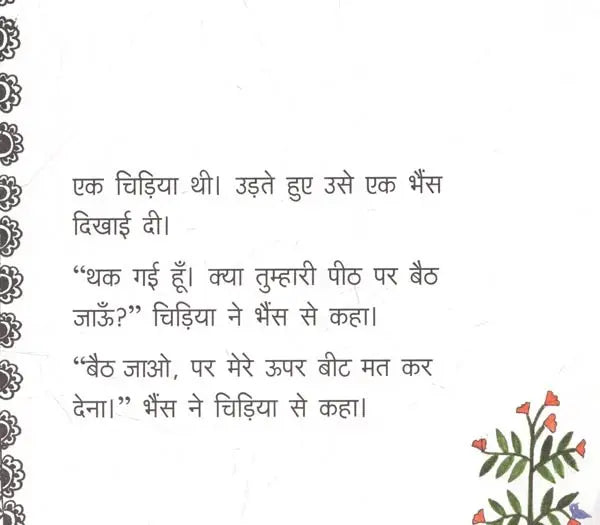 एक चिड़िया थी। उड़ते हुए उसे एक भैंस
दिखाई दी।
“थक गई हूँ। क्या तुम्हारी पीठ पर बैठ
जाऊँ?” चिड़िया ने भैंस से कहा।
“बैठ जाओ, पर मेरे ऊपर बीट मत कर
देना।” भैंस ने चिड़िया से कहा।